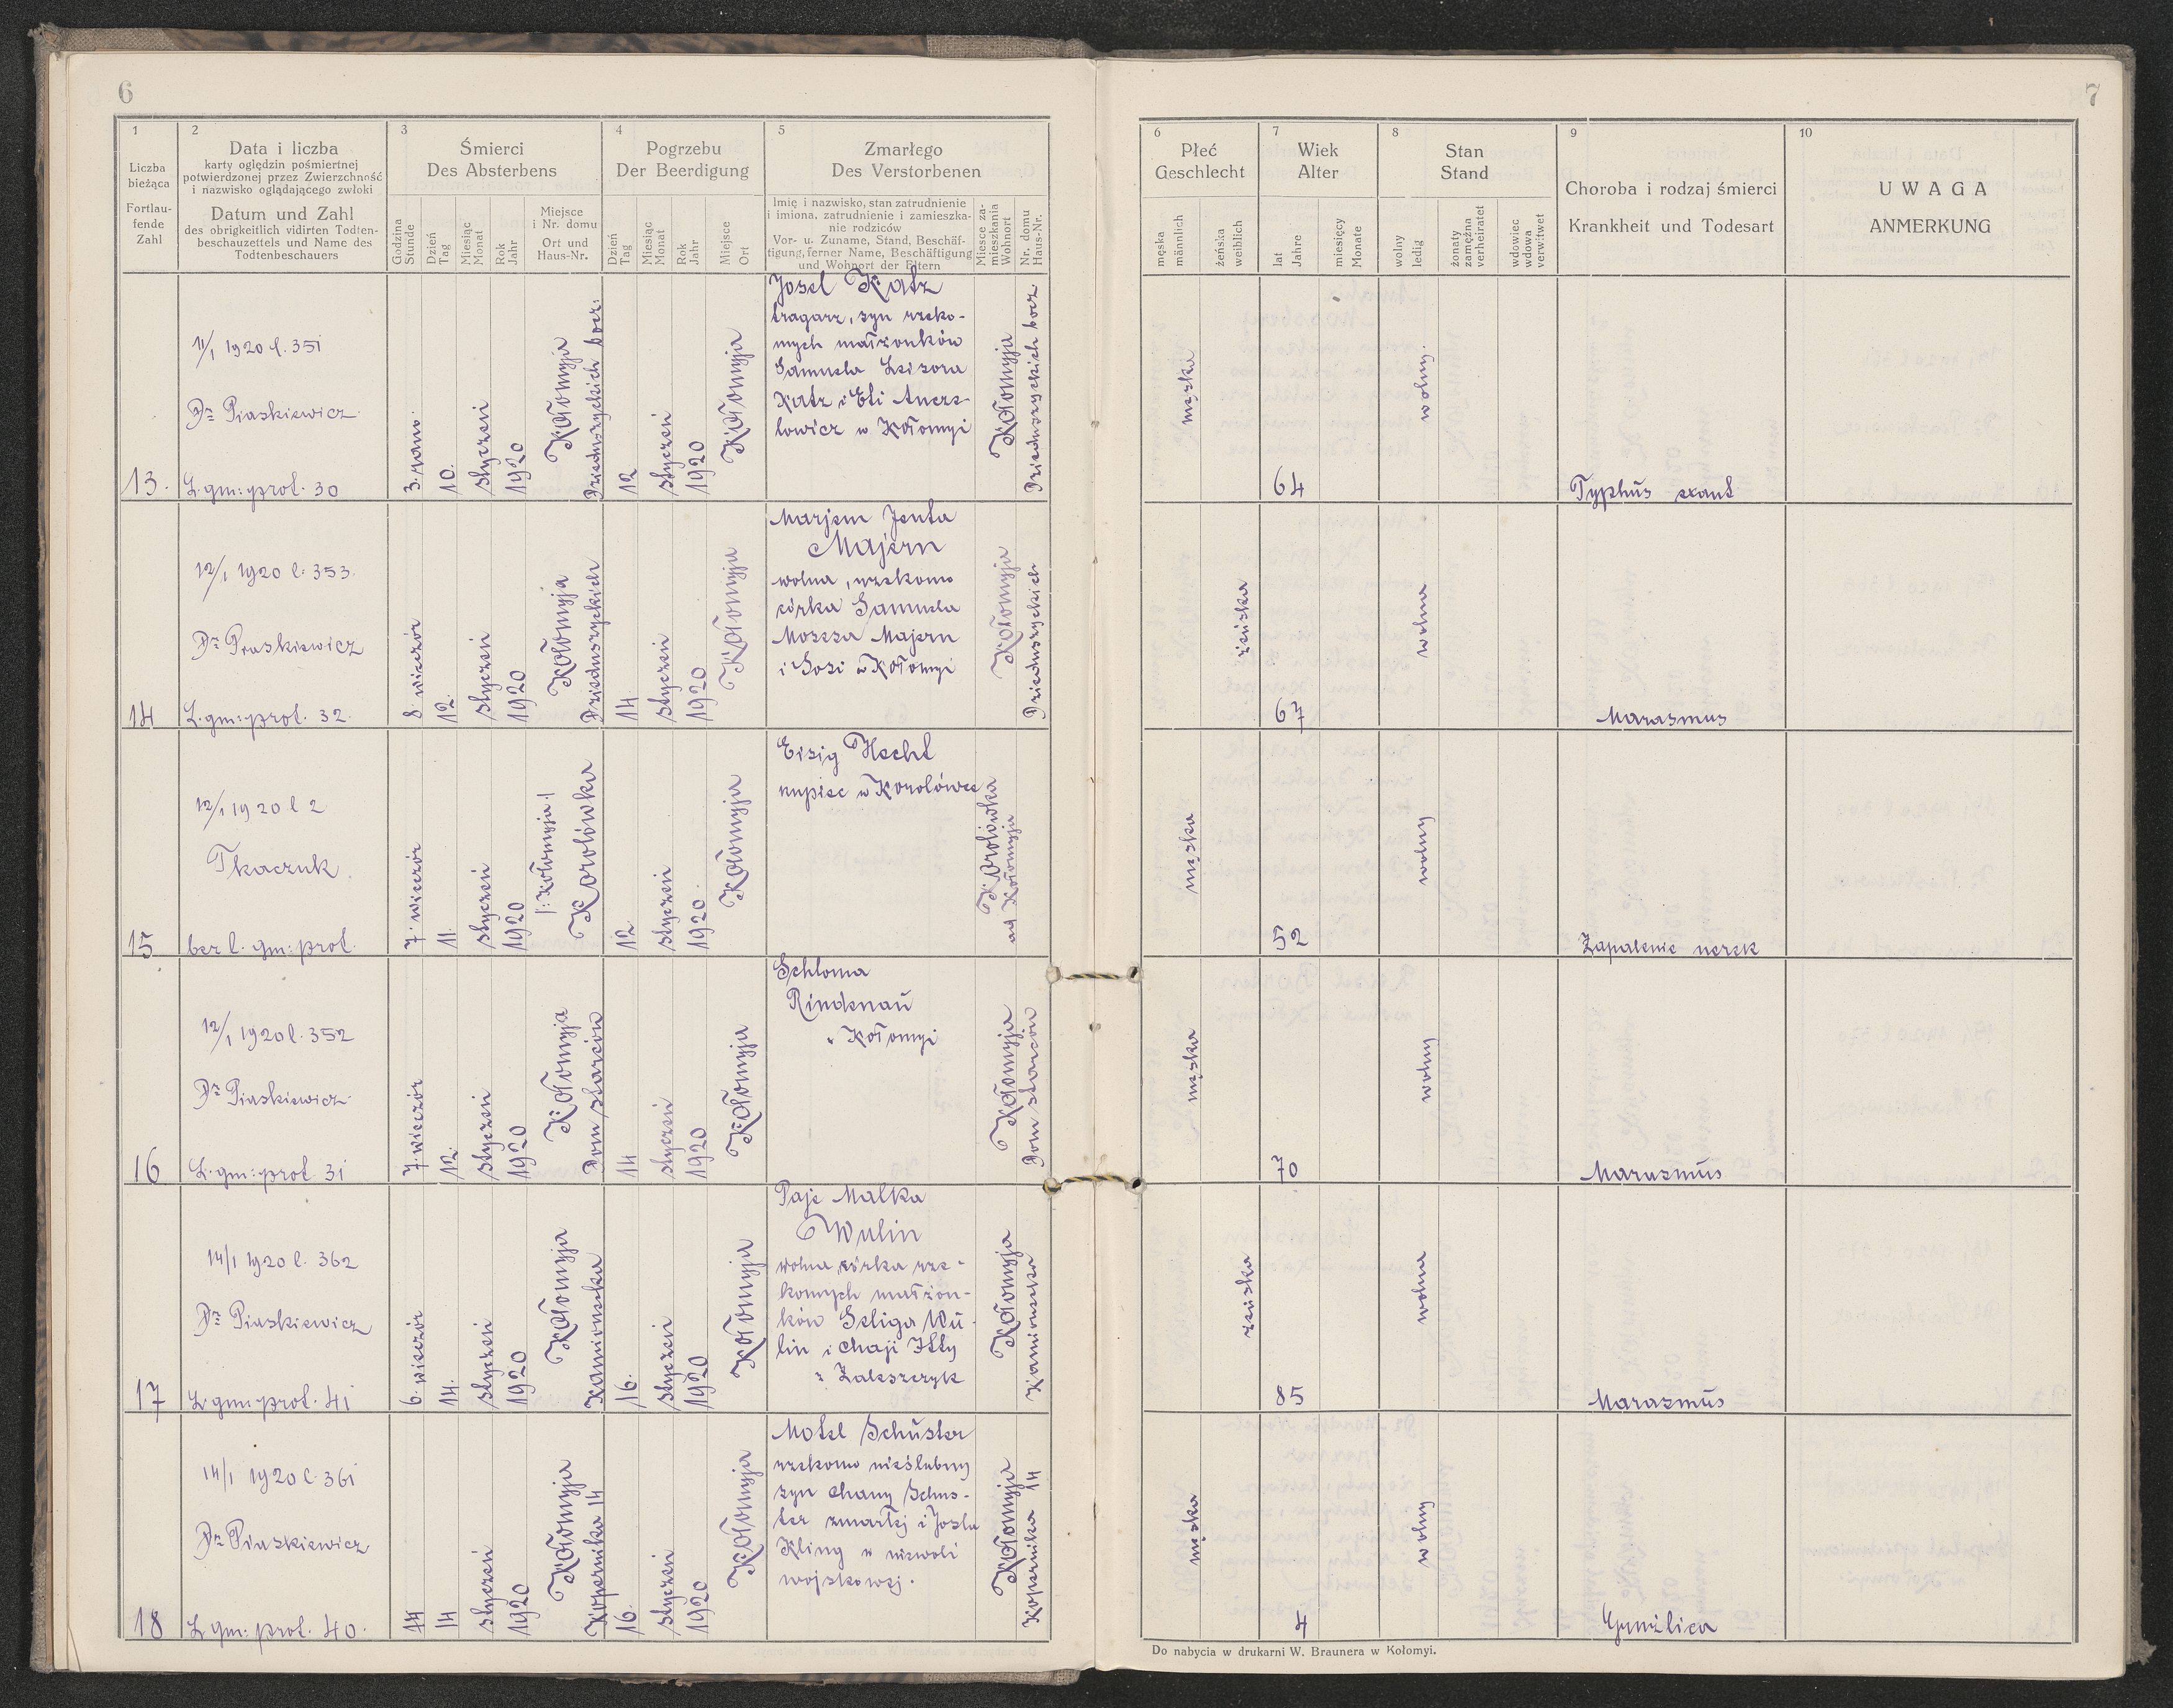 6
1
Liczba
bieżąca
Fortlau-
fende
Zahl
2
Data i liczba
karty oględzin pośmiertnej
potwierdzonej przez Zwierzchność
i nazwisko oglądającego zwłoki
Datum und Zahl
des obrigkeitlich vidirten Todten-
beschauzettels und Name des
Todtenbeschauers
3
Śmierci
Des Absterbens
Godzina
Stunde
Dzień
Tag
Miesiąc
Monat
Rok
Jahr
Miejsce
i Nr. domu
Ort und
Haus-Nr.
4
Pogrzebu
Der Beerdigung
Dzień
Tag
Miesiąc
Monat
Rok
Jahr
Miejsce
Ort
5
Zmarłego
Des Verstorbenen
Imię i nazwisko, stan zatrudnienie
i imiona, zatrudnienie i zamieszka-
nie rodziców
Vor- u. Zuname, Stand, Beschäf-
tigung, ferner Name, Beschäftigung
und Wohnort der Eltern
Miesce za-
mieszkania
Wohnort
Nr. domu
Haus-Nr.
13.
11/1 1920 l. 351
Dr Piaskiewicz
L. gm: prot. 30
3. rano.
10.
styczeń
1920
Kołomyja
Dzieduszyckich bocz.
12
styczeń
1920
Kołomyja
Josel Katz
tragarz, syn rzeko-
mych małżonków
Samuela Leizora
Katz i Eti
w Kołomyi
Kołomyja
Dzieduszyckich bocz
14
12/1 1920 l. 353.
Dr Piaskiewicz
L. gm: prot. 32.
8. wieczór
12.
styczeń
1920
Kołomyja
Dzieduszyckich
14
styczeń
1920
Kołomyja
Marjem Jenta
Majern
wolna, rzekomo
córka Samuela
Mozesa Majern
i Sosi w Kołomyi
Kołomyja
Dzieduszyckich
15
12/1 1920 l 2
Tkaczuk.
bez l. gm: prot.
7. wieczór
11.
styczeń
1920
/:Kołomyja:/
Korolówka
12.
styczeń
1920.
Kołomyja
Eisig Hecht
kupiec w Korolówce
Korolówka
ad Kołomyja
16
12/1 1920 l. 352
Dr Piaskiewicz
L. gm: prot. 31
7. wieczór
12.
styczeń
1920
Kołomyja
Dom starców
14
styczeń
1920
Kołomyja
Schloma
Rindenau
z Kołomyi
Kołomyja
Dom starców
17
14/1 1920 l. 362
Dr Piaskiewicz
L. gm: prot. 41
6. wieczór
14.
styczeń
1920
Kołomyja
Kamionecka
16.
styczeń
1920
Kołomyja
Paje Malka
Wulin
wolna, córka rze-
komych małżon-
ków Seliga Wu-
lin i Chaji Itty
z Zaleszczyk
Kołomyja
Kamionecka
18
14/1 1920 l. 361
Dr Piaskiewicz
L. gm: prot. 40.
14
14
styczeń
1920
Kołomyja
Kopernika 14
16.
styczeń
1920
Kołomyja
Motel Schuster
rzekomo nieślubny
syn Chany Schus-
ter zmarłej i Josla
Kling w niewoli
wojskowej.
Kołomyja
Kopernika 14
7
6
Płeć
Geschlecht
męska
männlich
żeńska
weiblich
7
Wiek
Alter
lat
Jahre
miesięcy
Monate
8
Stan
Stand
wolny
ledig
żonaty
zamężna
verheiratet
wdowiec
wdowa
verwitwet
9
Choroba i rodzaj śmierci
Krankheit und Todesart
10
UWAGA
ANMERKUNG
męska
64
wolny.
Typhus exant
żeńska
67
wolna
Marasmus
męska
52
wolny
Zapalenie nerek
męska
70
wolny
Marasmus
żeńska
85
wolna
Marasmus
męska
7
wolny
Gruźlica
Do nabycia w drukarni W. Braunera w Kołomyi.